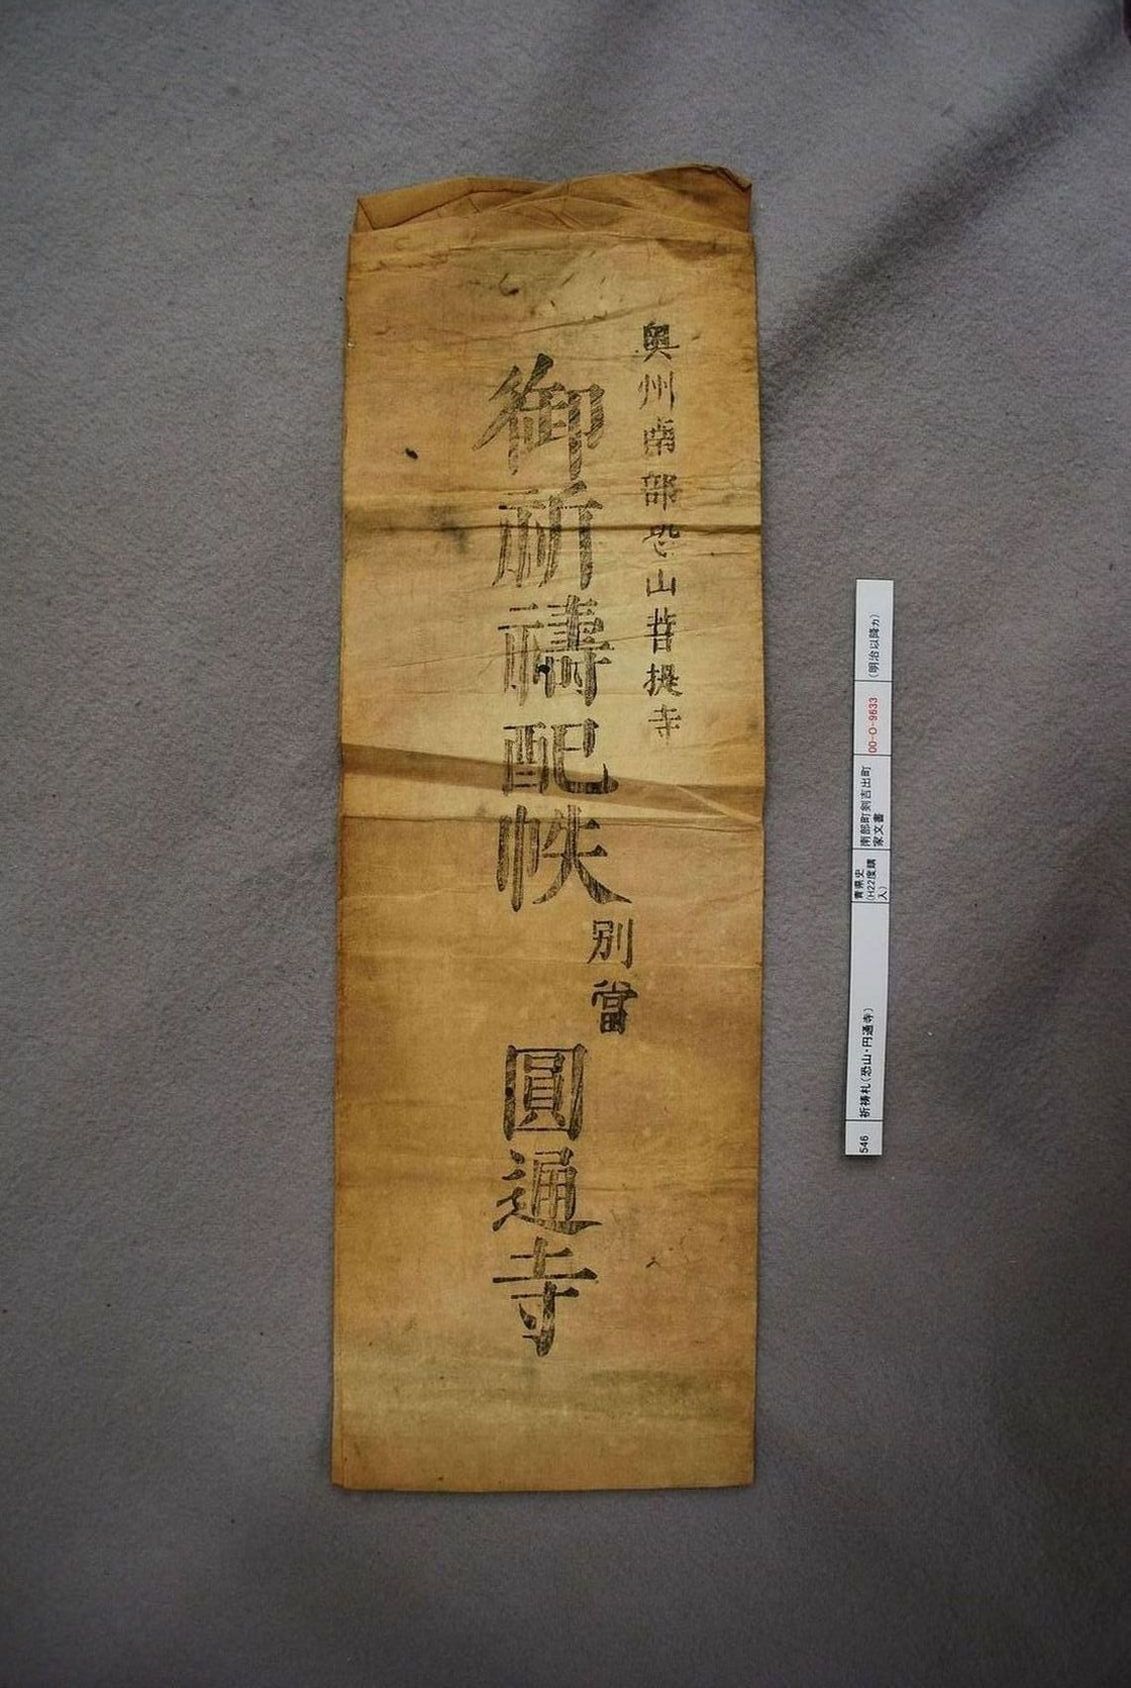 奥州南部恐山菩提寺
御祈禱配帙
別當
圓通寺
546
祈祷札（恐山・円通寺）
青県史
（H22度購
入）
南部町剣吉出町
家文書
00-O-9633
（明治以降カ）